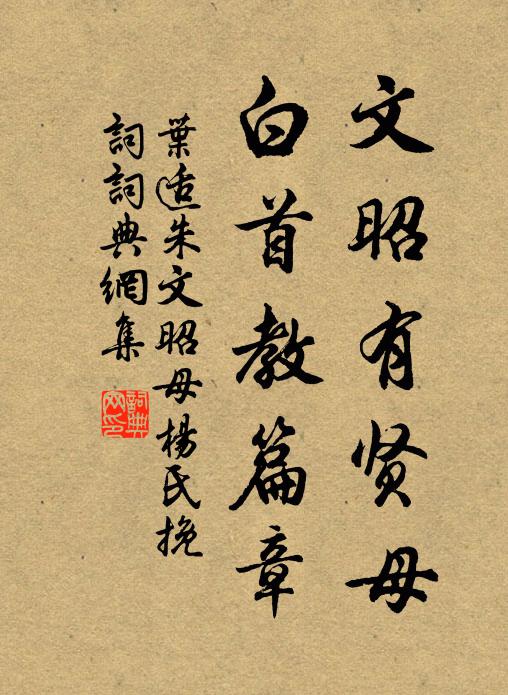 文昭有贤母
白首教篇章
葉适朱文昭母楊氏挽
詞詞典網集
詞典
网印